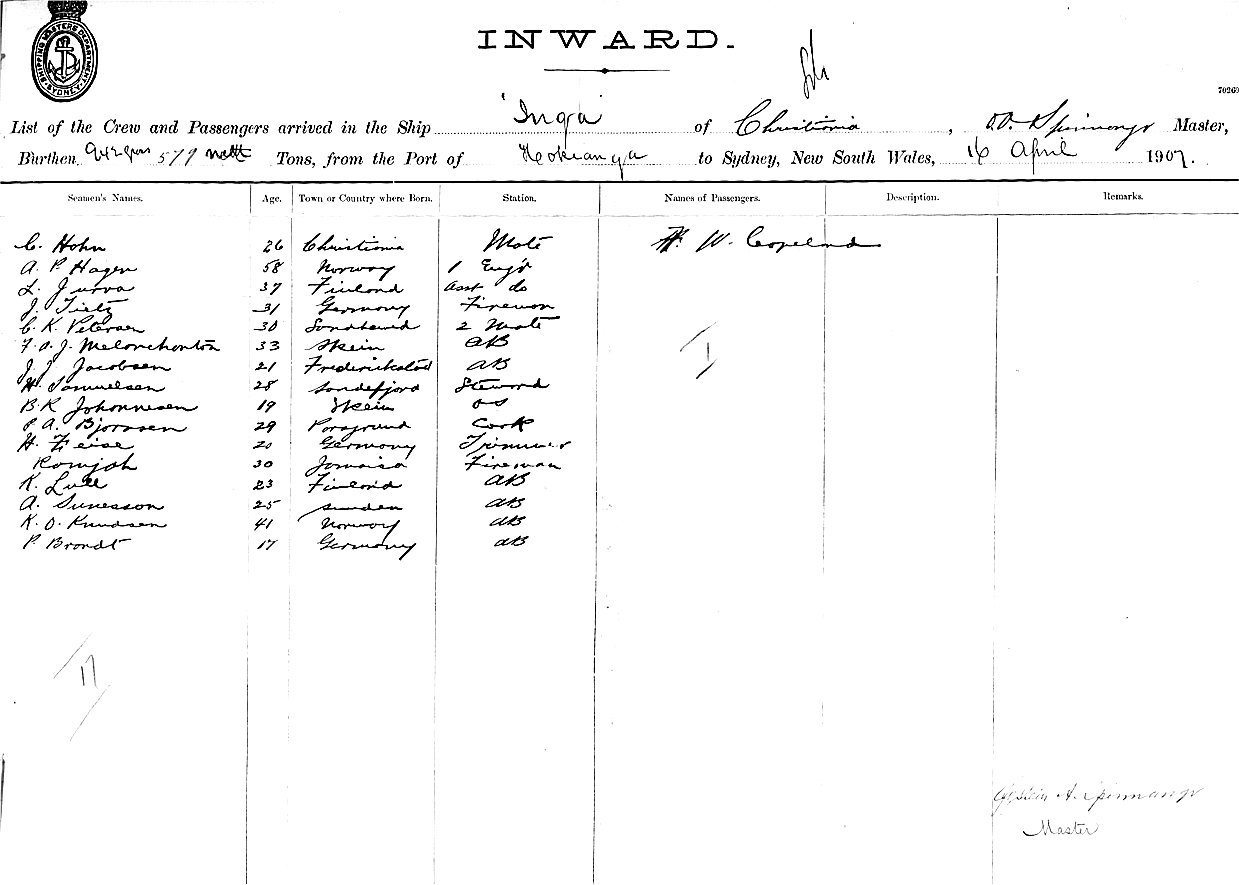 SHIPPING MASTERS DEPARTMENT. SYDNEY
INWARD.
70269
List of the Crew and Passengers arrived in the Ship "Inga" of Christiania, Master,
Burthen 942 gross 579 nett Tons, from the Port of Hokianga to Sydney, New South Wales, 16 April 1907.
Seamen's Names. Age. Town or Country where Born. Station. Names of Passengers. Description. Remarks.
C. Hohn 26 Christiania Mate H. W. Copeland
A. P. Hagen 58 Norway 1 Eng'r
L. Jurva 37 Finland Asst do
J. Tietz 31 Germany Fireman
C. K. Petersen 30 2 Mate
F. O. J. 33 Skein AB
J. J. Jacobsen 21 Frederickstad AB
H. Samuelsen 28 Sandefjord Steward
B. R. Johannesen 19 Skein OS
P. A. Bjornsen 29 Porsgrund Cook
H. Feise 20 Germany Trimmer
Ramjah 30 Jamaica Fireman
K. Lull 23 Finland AB
A. Sunesson 25 Sweden AB
K. O. Knudsen 41 Norway AB
P. Brandt 17 Germany AB
1
17
A. Spinnangr
Master